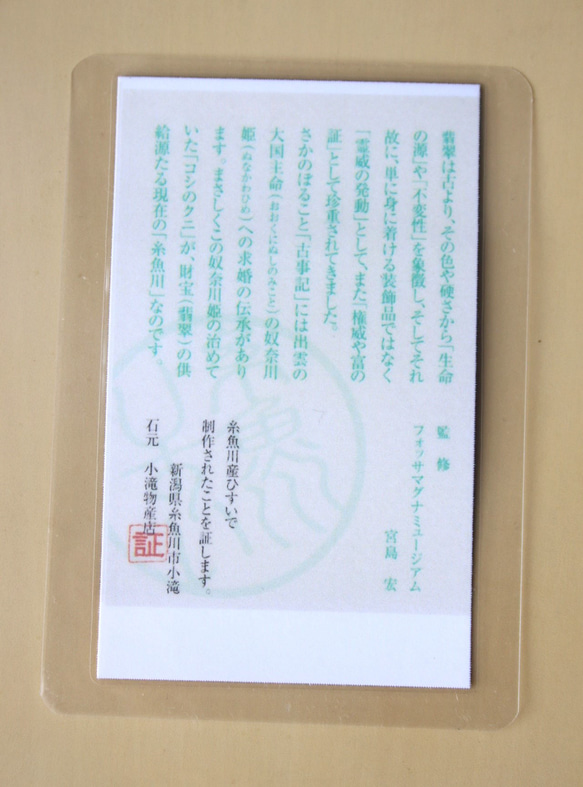 翡翠は古より、その色や硬さから「生命
の源」や「不変性」を象徴し、そしてそれ
故に、単に身に着ける装飾品ではなく
「霊威の発動」として、また「権威や富の
証」として珍重されてきました。
さかのぼること「古事記」には出雲の
大国主命(おおくにぬしのみこと)の奴奈川
姫(ぬなかわひめ)への求婚の伝承があり
ます。まさしくこの奴奈川姫の治めて
いた「コシのクニ」が、財宝(翡翠)の供
給源たる現在の「糸魚川」なのです。
監修
フォッサマグナミュージアム
宮島 宏
糸魚川産ひすいで
制作されたことを証します。
新潟県糸魚川市小滝
石元 小滝物産店
証